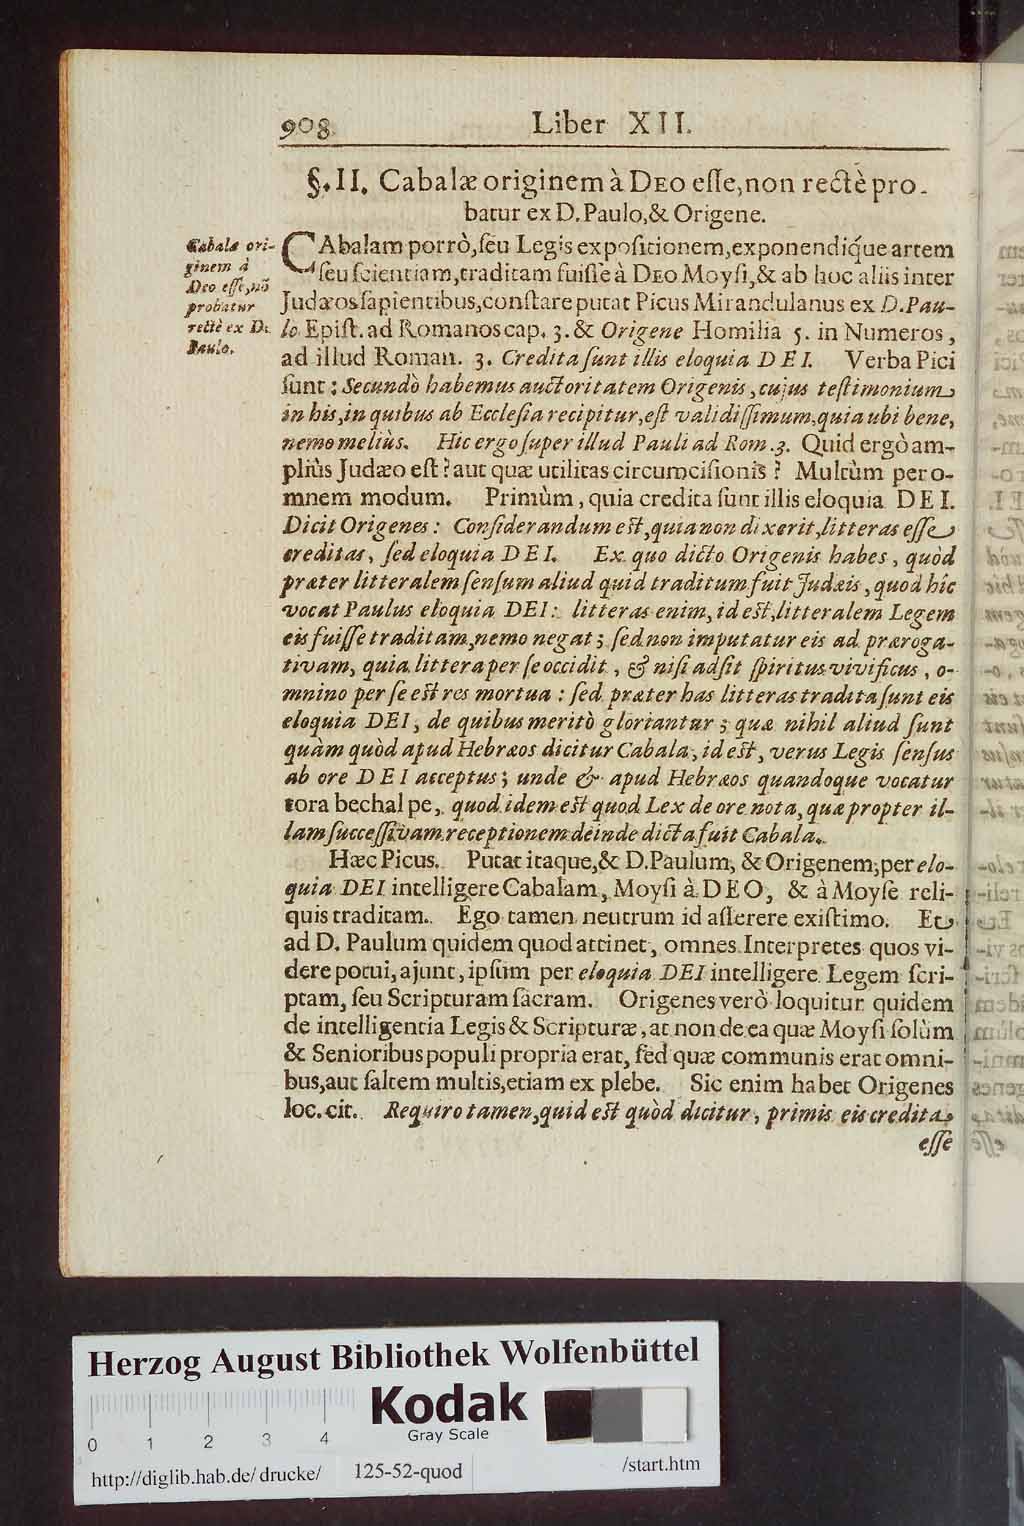 908 Liber XII.
§. II. Cabalæ originem à DEO eſſe, non rectè pro-
batur ex D. Paulo, & Origene.
Cabalæ ori-
ginem à
Deo eſſe, nō
probatur
rectè ex D.
Paulo.
CAbalam porrò, ſeu Legis expoſitionem, exponendiq́ue artem
ſeu ſcientiam, traditam fuiſſe à DEO Moyſi, & ab hoc aliis inter
Judæos ſapientibus, conſtare putat Picus Mirandulanus ex D. Pau-
lo Epiſt. ad Romanos cap. 3. & Origene Homilia 5. in Numeros,
ad illud Roman. 3. Credita ſunt illis eloquia DEI. Verba Pici
ſunt: Secundò habemus auctoritatem Origenis, cujus teſtimonium
in his, in quibus ab Eccleſia recipitur, eſt validiſſimum, quia ubi bene,
nemo meliùs. Hic ergo ſuper illud Pauli ad Rom. 3. Quid ergò am-
pliùs Judæo eſt? aut quæ utilitas circumciſionis? Multùm per o-
mnem modum. Primùm, quia credita ſunt illis eloquia DEI.
Dicit Origenes: Conſiderandum eſt, quia non dixerit, litteras eſſe
creditas, ſed eloquia DEI. Ex quo dicto Origenis habes, quòd
præter litteralem ſenſum aliud quid traditum fuit Judæis, quod hîc
vocat Paulus eloquia DEI: litteras enim, id eſt, litteralem Legem
eis fuiſſe traditam, nemo negat; ſed non imputatur eis ad præroga-
tivam, quia littera per ſe occidit, & niſi adſit ſpiritus vivificus, o-
mnino per ſe eſt res mortua: ſed præter has litteras tradita ſunt eis
eloquia DEI, de quibus meritò gloriantur; quæ nihil aliud ſunt
quàm quòd apud Hebræos dicitur Cabala, id eſt, verus Legis ſenſus
ab ore DEI acceptus; unde & apud Hebræos quandoque vocatur
tora bechal pe, quod idem eſt quod Lex de ore nota, quæ propter il-
lam ſucceſſivam receptionem deinde dicta fuit Cabala.
Hæc Picus. Putat itaque, & D. Paulum, & Origenem, per elo-
quia DEI intelligere Cabalam, Moyſi à DEO, & à Moyſe reli-
quis traditam. Ego tamen neutrum id aſſerere exiſtimo. Et
ad D. Paulum quidem quod attinet, omnes Interpretes quos vi-
dere potui, ajunt, ipſum per eloquia DEI intelligere Legem ſcri-
ptam, ſeu Scripturam ſacram. Origenes verò loquitur quidem
de intelligentia Legis & Scripturæ, at non de ea quæ Moyſi ſolùm
& Senioribus populi propria erat, ſed quæ communis erat omni-
bus, aut ſaltem multis, etiam ex plebe. Sic enim habet Origenes
loc. cit. Requiro tamen, quid eſt quòd dicitur, primis eis credita
eſſe
Herzog August Bibliothek Wolfenbüttel
Kodak
Gray Scale
0 1 2 3 4
http://diglib.hab.de/drucke/ 125-52-quod /start.htm